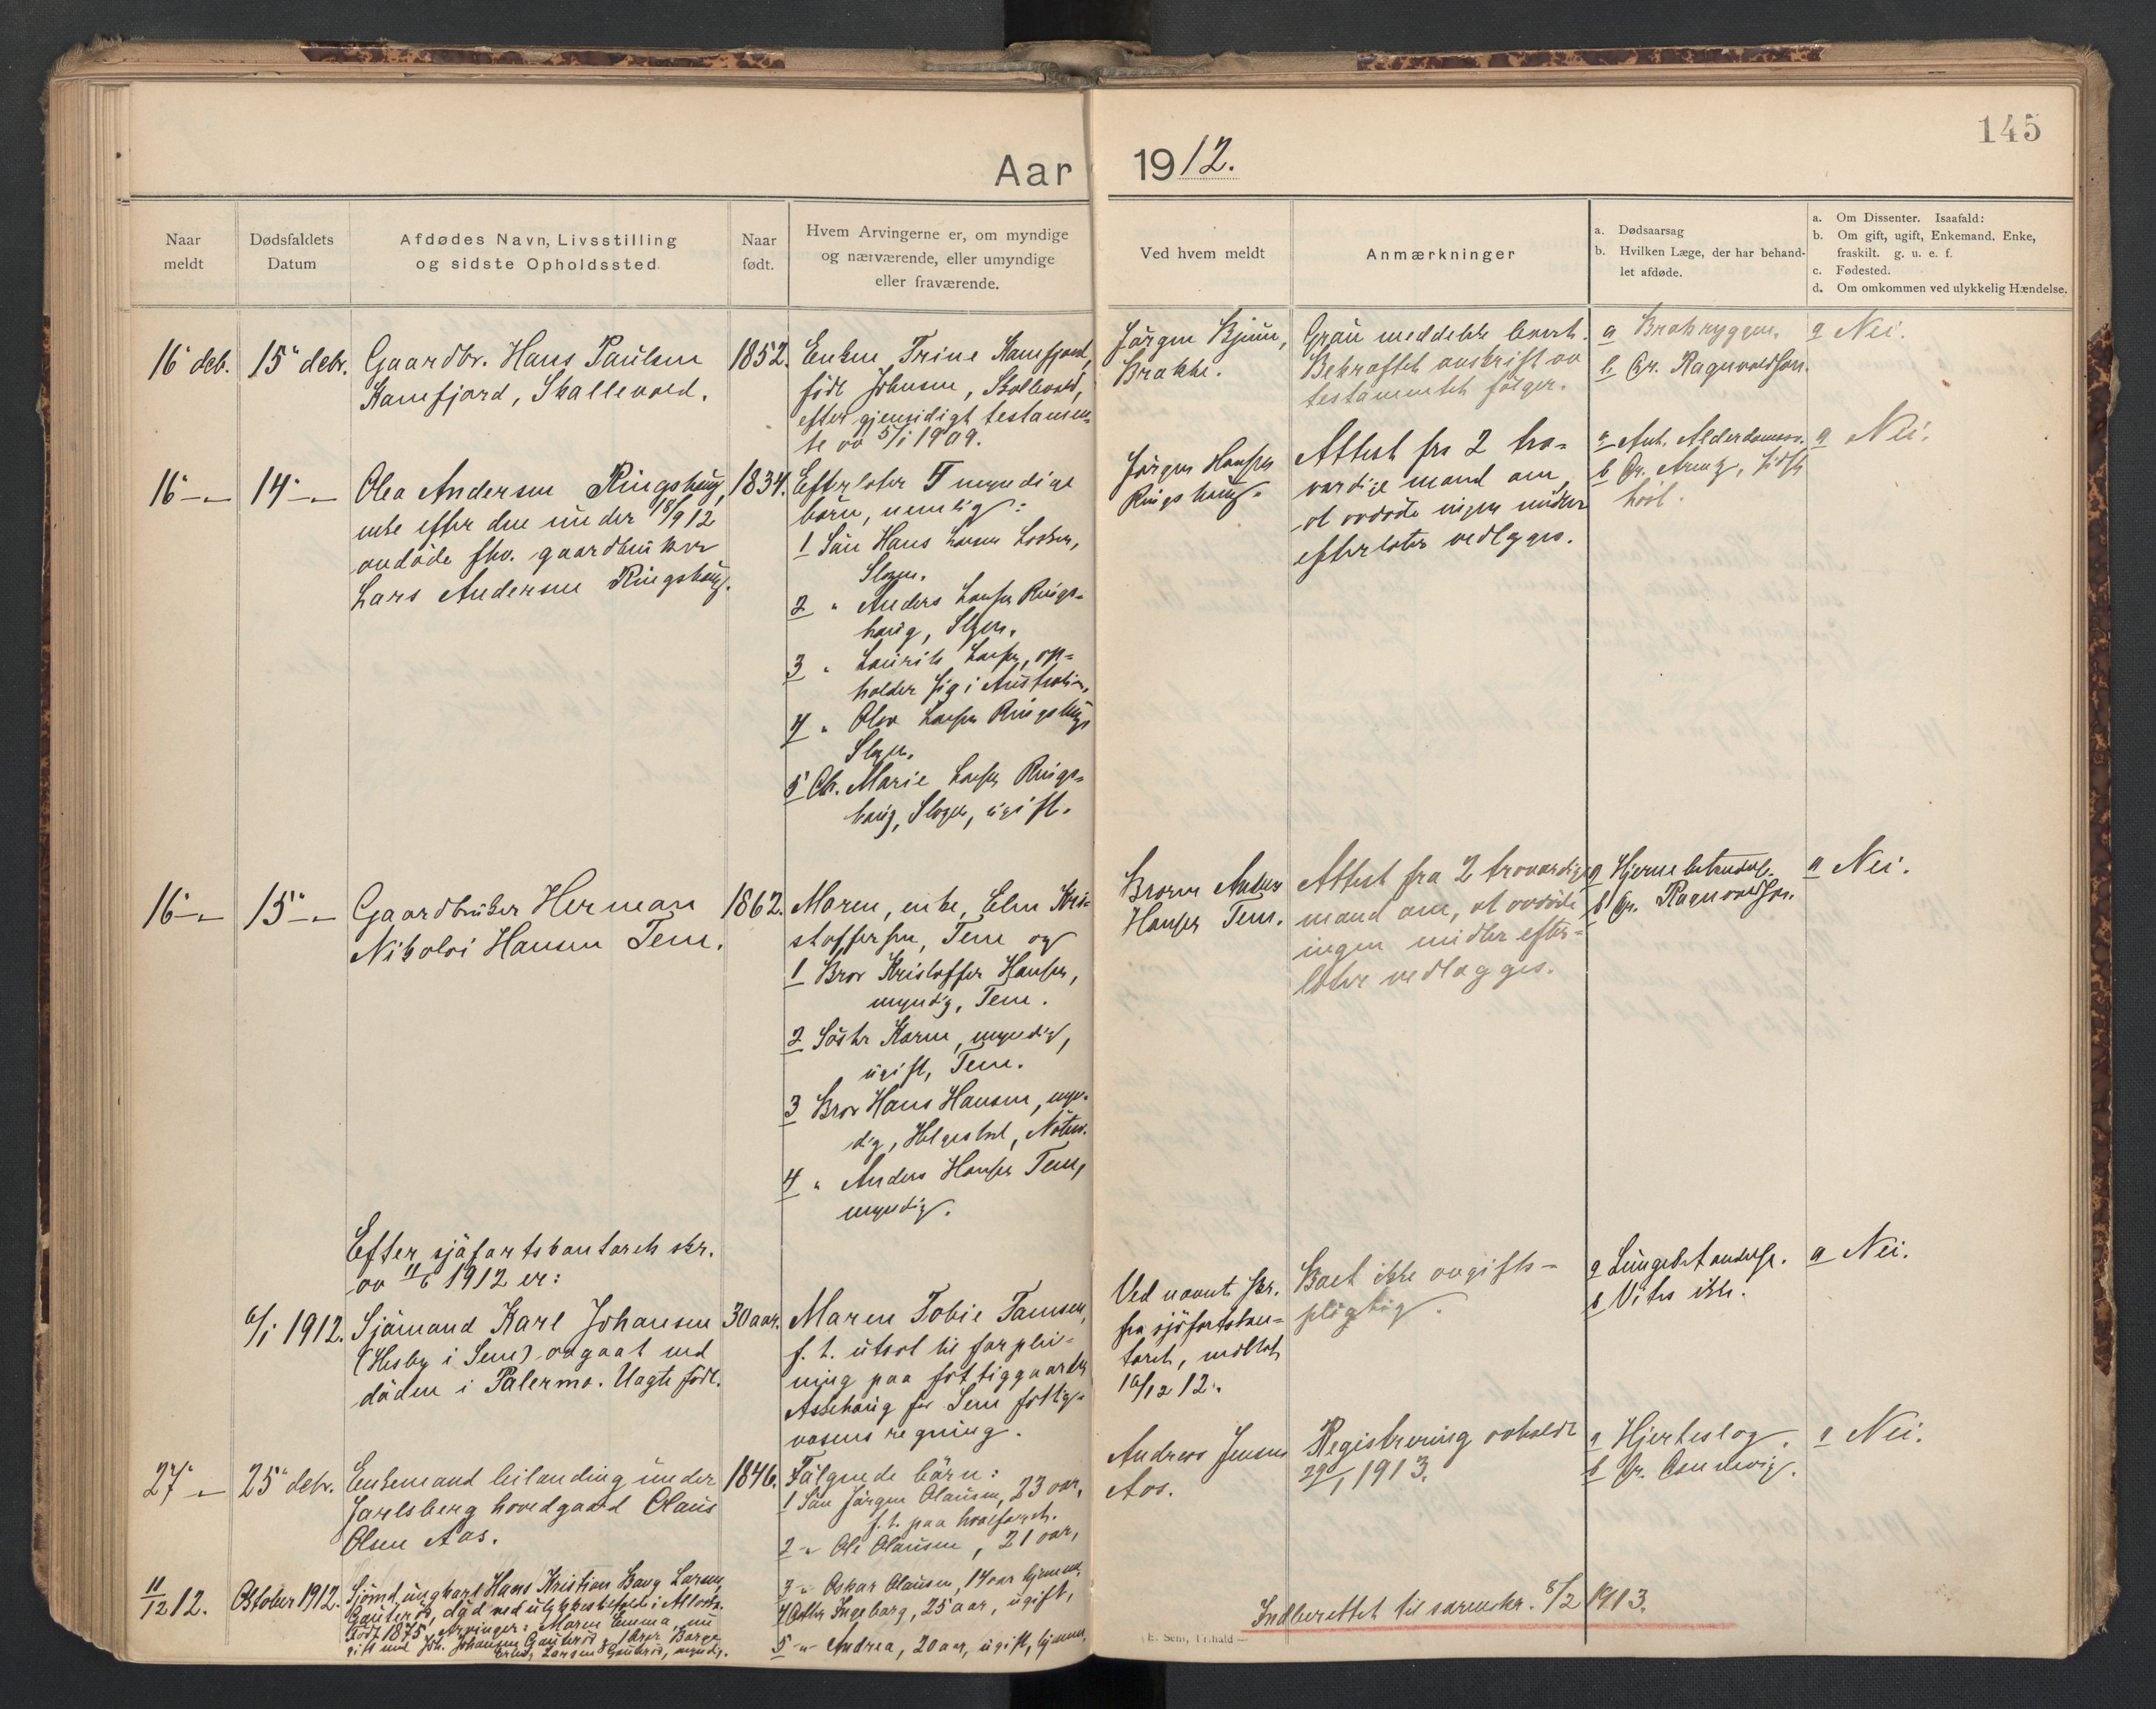 145
Aar 1912.
Naar meldt
Dødsfaldets Datum
Afdødes Navn, Livsstilling og sidste Opholdssted
Naar født.
Hvem Arvingerne er, om myndige og nærværende, eller umyndige eller fraværende.
Ved hvem meldt
Anmærkninger
a. Dødsaarsag
b. Hvilken Læge, der har behandlet afdøde.
a. Om Dissenter. Isaafald:
b. Om gift, ugift, Enkemand, Enke, fraskilt. g. u. e. f.
c. Fødested.
d. Om omkommen ved ulykkelig Hændelse.
16 deb. 15 debr. Gaardbr. Hans Paulsen
Kamfjord, Skallevold.
1852.
Enken Trine Kamfjord,
født Johnsen, Skallevold,
efter gjensidigt testamen-
te av 5/1 1909.
Jörgen Bjune,
Brakke.
Bekræftet avskrift av
testamentet følger.
a
b Dr. Ragnvaldsen.
a Nei.
16 - 14 - Olea Andersen Ringshaug,
enke efter den under 18/9 1912
avdöde fhv. gaardbruker
Lars Andersen Ringshaug.
1834.
Efterlater 5 myndige
børn, nemlig:
1 Sön Hans Larsen
Slagen.
2 " Anders Larsen Rings-
haug, Slagen.
3 " Laurits Larsen, op-
holder sig i Australien.
4 " Olav Larsen Ringshaug
Slagen.
5 Dtr. Marie Larsen Rings-
haug, Slagen, ugift.
Jörgen Hansen
Ringshaug.
Attest fra 2 tro-
værdige mænd om,
at avdöde ingen midler
efterlater vedlægges.
a Ant. Alderdomssv.
b Dr. Arentz, sidste
höst.
a Nei.
16 - 15 - Gaardbruker Herman
Nikolai Hansen Tem.
1862.
Moren, enke, Elen Kri-
stoffersen, Tem og
1 Bror Kristoffer Hansen,
myndig, Tem.
2 Söster Karen, myndig,
ugift, Tem.
3 Bror Hans Hansen, myn-
dig, Nöterö.
4 " Anders Hansen Tem,
myndig.
Broren Anders
Hansen Tem.
Attest fra 2 troværdige
mænd om, at avdöde
ingen midler efter-
later vedlægges.
a Hjernebetændelse.
b Dr. Ragnvaldsen.
a Nei.
Efter sjöfartskontorets skr.
av 11/6 1912 er:
6/1 1912. Sjömand Karl Johansen
(Hesby i Sem) avgaat ved
döden i Palermo. Uægte född.
30 aar.
Maren Tobie Jansen,
f. t. utsat til forplei-
ning paa fattiggaarden
for Sem fattig-
væsens regning.
Ved nævnte skr.
fra sjöfartskon-
toret, mottat
16/12 12.
Boet ikke avgifts-
pligtig.
a Lungebetændelse.
b Vites ikke.
a Nei.
27 - 25 debr. Enkemand leilænding under
Jarlsberg hovedgaard Olaus
Olsen Aas.
1846.
Fölgende börn:
1 Sön Jörgen Olausen, 23 aar,
f. t. paa hvalfangst.
2 - Ole Olausen, 21 aar,
3 - Oskar Olausen, 14 aar hjemme
4 Datter Ingeborg, 25 aar, ugift,
5 - Andrea, 20 aar, ugift, hjemme.
Andreas Jensen
Aas.
Registrering avholdt
29/1 1913.
a Hjerteslag.
b Dr.
a Nei.
11/12 12. Oktober 1912. Sjömd, ungkarl Hans Kristian Larsen,
Gauterød, död ved ulykkeshændelse i
Född 1875, Arvinger: Moren Emma, nu
gift med Joh. Johansen Gauterød &
Larsen Gauterød, myndig.
Indberettet til sorenskr. 8/2 1913.
E. Sem, Fr.hald